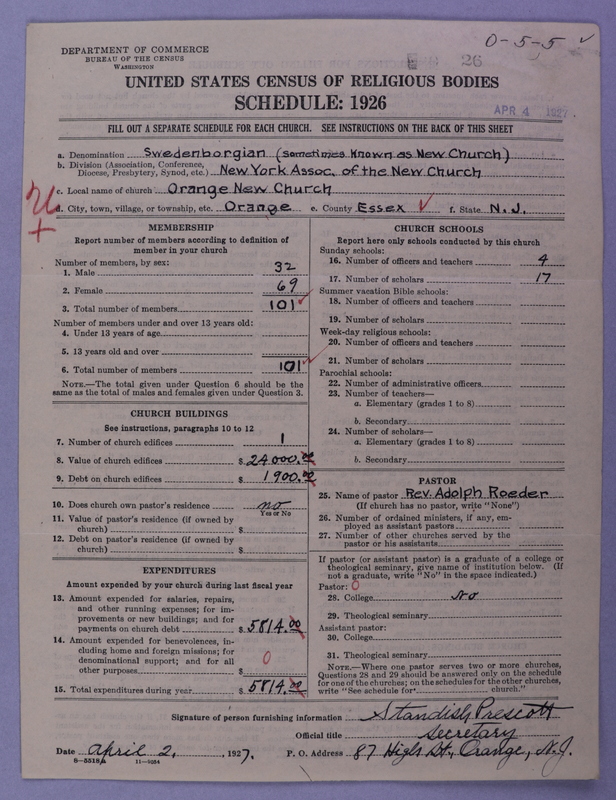 0-5-5 ✓
DEPARTMENT OF COMMERCE
BUREAU OF THE CENSUS
WASHINGTON
26
UNITED STATES CENSUS OF RELIGIOUS BODIES
SCHEDULE: 1926
APR 4 1927
FILL OUT A SEPARATE SCHEDULE FOR EACH CHURCH. SEE INSTRUCTIONS ON THE BACK OF THIS SHEET
a. Denomination Swedenborgian (sometimes known as New Church)
b. Division (Association, Conference, Diocese, Presbytery, Synod, etc.) New York Assoc. of the New Church
c. Local name of church Orange New Church
d. City, town, village, or township, etc. Orange e. County Essex ✓ f. State N.J.
MEMBERSHIP
Report number of members according to definition of
member in your church
Number of members, by sex:
1. Male 32
2. Female 69
3. Total number of members 101 ✓
Number of members under and over 13 years old:
4. Under 13 years of age
5. 13 years old and over
6. Total number of members 101 ✓
NOTE.—The total given under Question 6 should be the
same as the total of males and females given under Question 3.
CHURCH BUILDINGS
See instructions, paragraphs 10 to 12
7. Number of church edifices 1
8. Value of church edifices $ 24000.00
9. Debt on church edifices $ 1900.00
10. Does church own pastor's residence no
Yes or No
11. Value of pastor's residence (if owned by
church) $
12. Debt on pastor's residence (if owned by
church) $
EXPENDITURES
Amount expended by your church during last fiscal year
13. Amount expended for salaries, repairs,
and other running expenses; for im-
provements or new buildings; and for
payments on church debt $ 5814.00
14. Amount expended for benevolences, in-
cluding home and foreign missions; for
denominational support; and for all
other purposes $ 0
15. Total expenditures during year $ 5814.00
CHURCH SCHOOLS
Report here only schools conducted by this church
Sunday schools:
16. Number of officers and teachers 4
17. Number of scholars 17
Summer vacation Bible schools:
18. Number of officers and teachers
19. Number of scholars
Week-day religious schools:
20. Number of officers and teachers
21. Number of scholars
Parochial schools:
22. Number of administrative officers
23. Number of teachers—
a. Elementary (grades 1 to 8)
b. Secondary
24. Number of scholars—
a. Elementary (grades 1 to 8)
b. Secondary
PASTOR
25. Name of pastor Rev. Adolph Roeder
(If church has no pastor, write "None")
26. Number of ordained ministers, if any, em-
ployed as assistant pastors
27. Number of other churches served by the
pastor or his assistants
If pastor (or assistant pastor) is a graduate of a college or
theological seminary, give name of institution below. (If
not a graduate, write "No" in the space indicated.)
Pastor: 0
28. College No
29. Theological seminary
Assistant pastor:
30. College
31. Theological seminary
NOTE.—Where one pastor serves two or more churches,
Questions 28 and 29 should be answered only on the schedule
for one of the churches; on the schedules for the other churches,
write "See schedule for church."
Signature of person furnishing information Standish Prescott
Official title Secretary
Date April 2, 1927. P. O. Address 87 High St., Orange, N.J.
8-5518a 11-8064